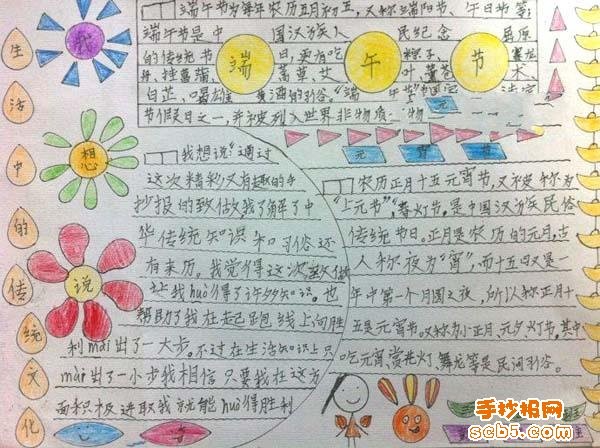 生活中的传统文化
我想说
端午节
端午节为每年农历五月初五,又称端阳节、午日节等;
端午节是中国汉族人民纪念屈原
的传统节日,更有吃粽子、赛龙
舟、挂菖蒲、蒿草、艾叶,薰苍术、
白芷、喝雄黄酒的习俗。“端午节”为国家法定
节假日之一,并被列入世界非物质
元宵节
我想说“通过
这次精彩又有趣的手
抄报的致做我了解了中
华传统知识和习俗还
有来历。我觉得这次
让我huò得了许多知识。也
帮助了我在起跑线上向胜
利mài出了一大步。不过在生活知识上只
mài出了一小步我相信只要我在这方
面积极进取我就能huò得胜利
农历正月十五元宵节,又被称为
“上元节”,春灯节,是中国汉族民俗
传统节日。正月是农历的元月,古
人称夜为“宵”,而十五日又是一
年中第一个月圆之夜,所以称正月十
五是元宵节。又称为小正月、元夕、灯节。其中
吃元宵、赏花灯、舞龙等是民间习俗。
手抄报网
scb5.com